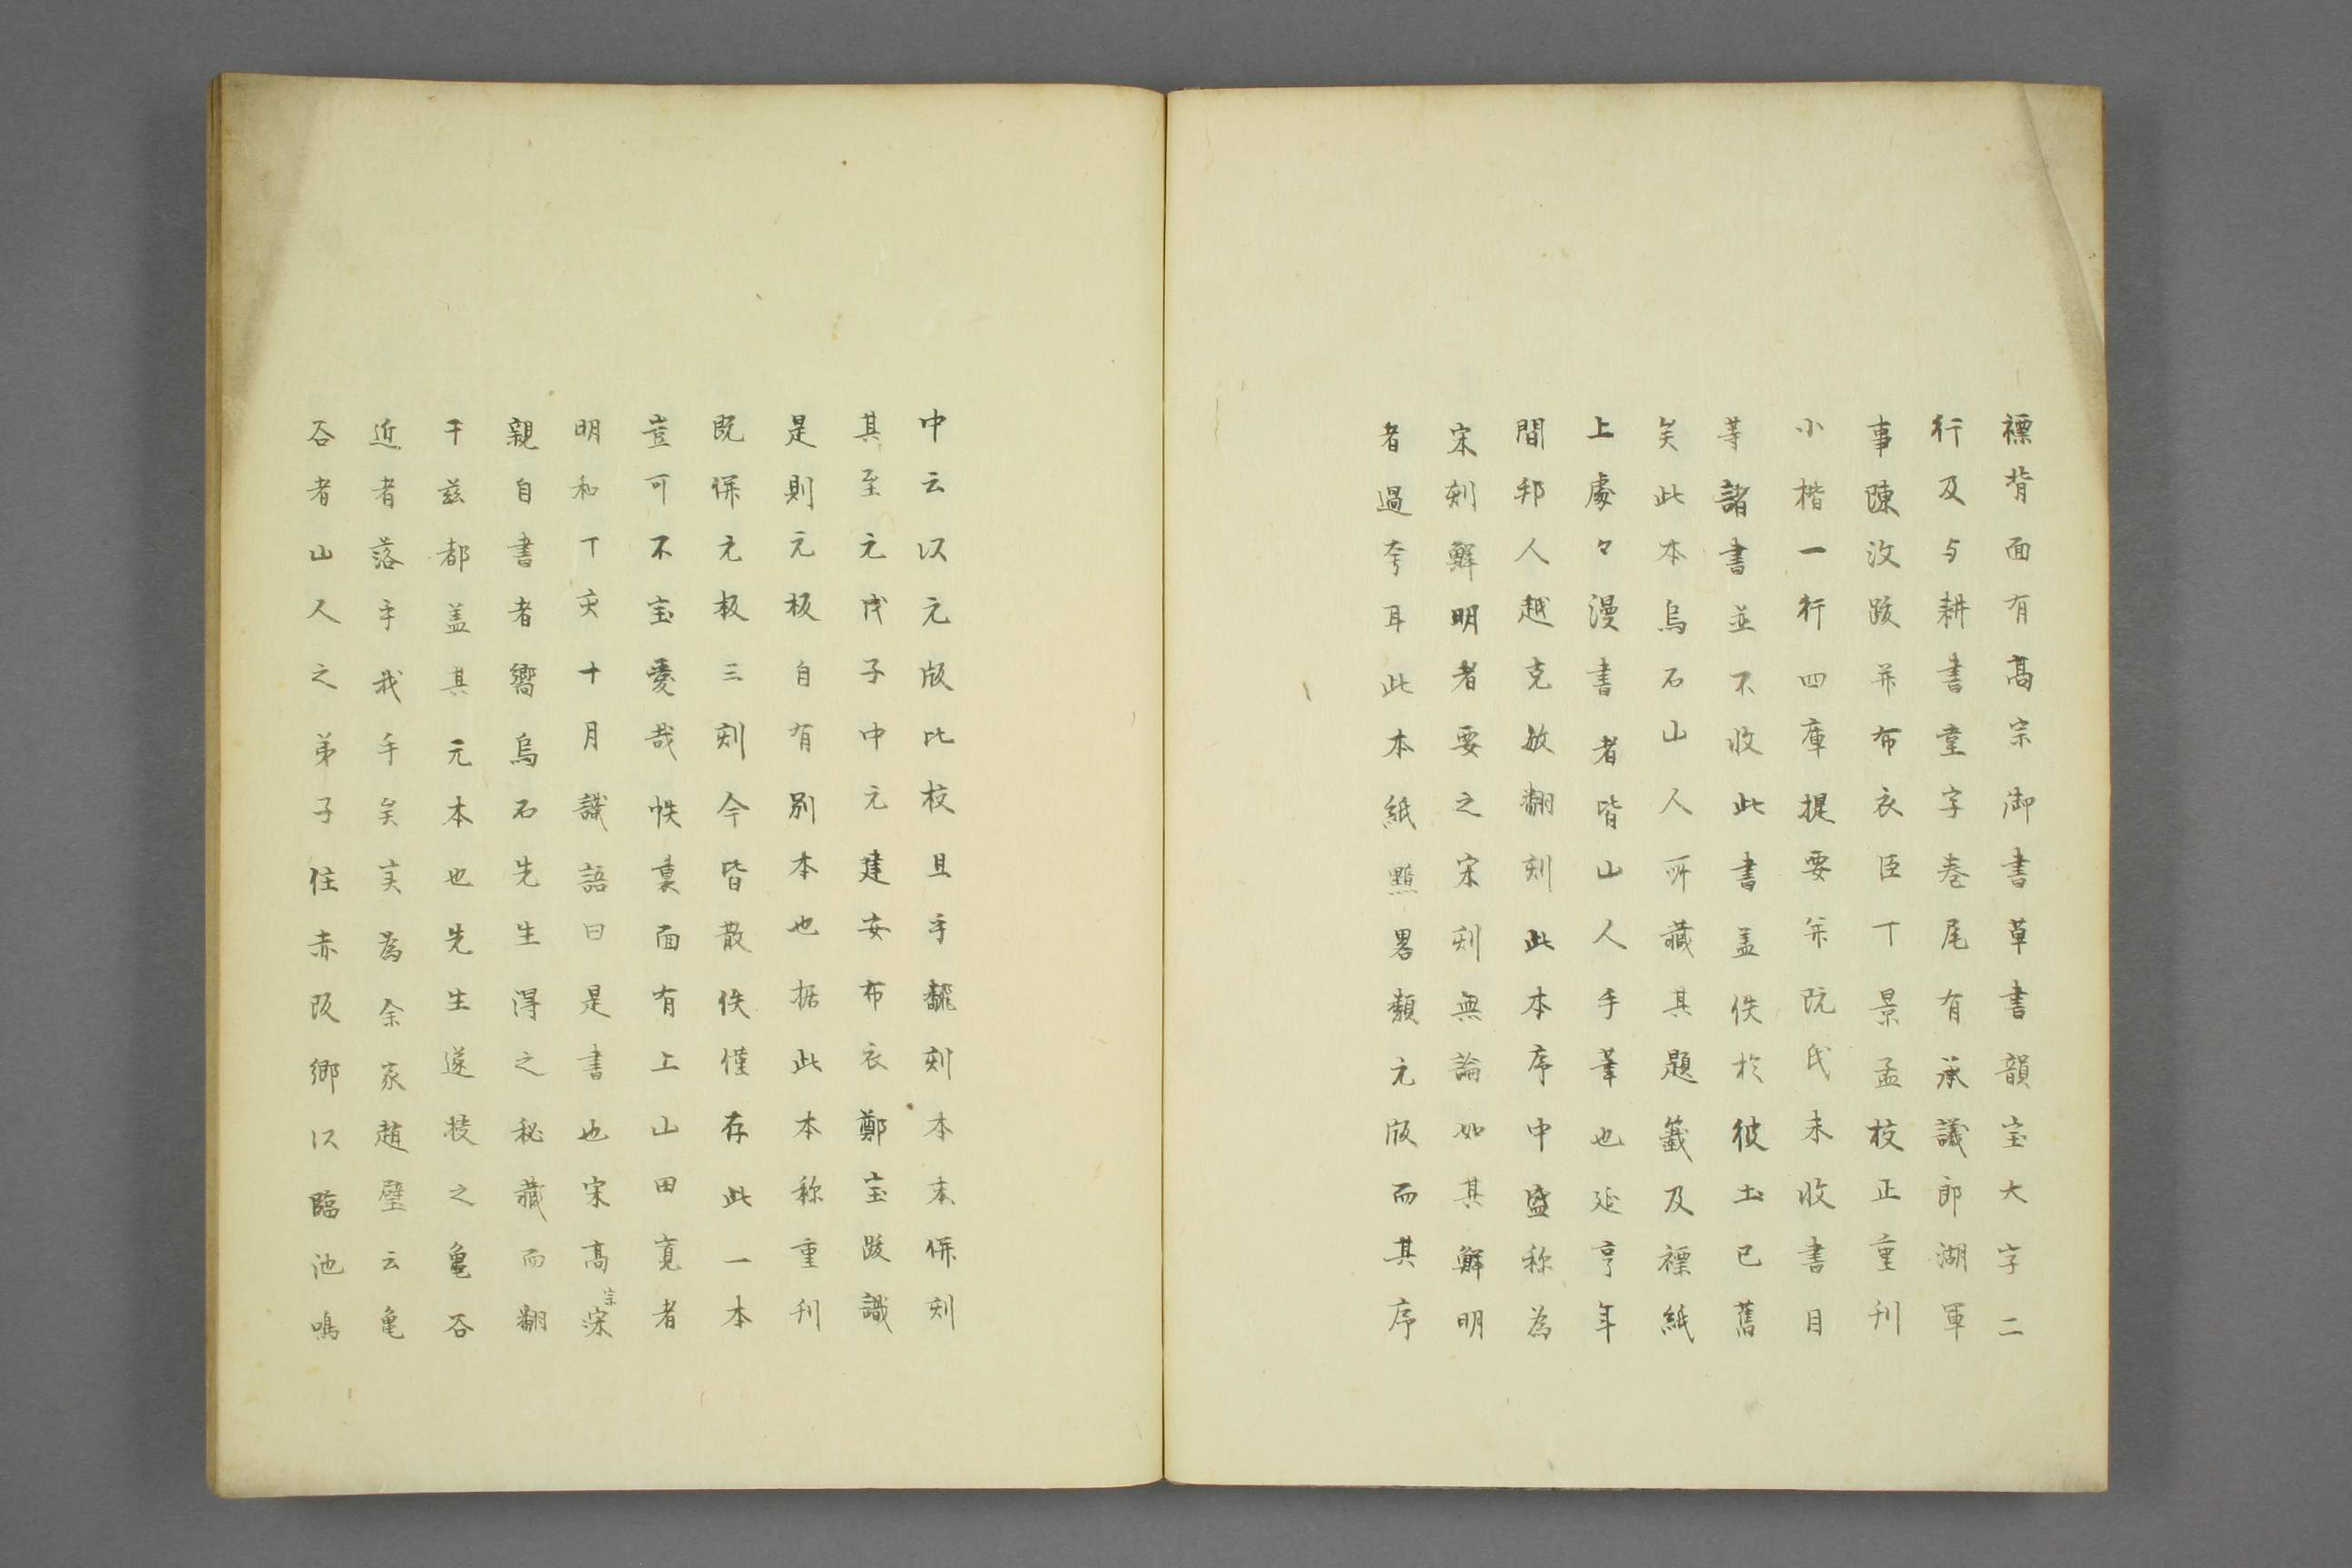 褾背面有髙宗御書草書韻宝大字二
行及与耕書堂字巻尾有承議郎湖軍
事陳汶跋并布衣臣丁景孟校正重刊
小楷一行四庫提要并阮氏未收書目
等諸書並不收此書盖佚於彼土已舊
矣此本烏石山人所藏其題籤及褾紙
上處々漫書者皆山人手筆也延享年
間邦人越克敏翻刻此本序中盛称為
宋刻觧明者要之宋刻無論如其觧明
者過夸耳此本紙黯畧類元版而其序
中云以元版比校且手飜刻本末併刻
其至元戊子中元建安布衣鄭宝跋識
是則元板自有别本也据此本称重刊
既併元板三刻今皆散佚僅存此一本
豈可不宝愛哉帙裏面有上山田寛者
明和丁亥十月識語曰是書也宋髙宗深
親自書者嚮烏石先生得之秘藏而翻
于茲都盖其元本也先生遂授之亀谷
近者落手我手矣実為余家趙璧云亀
谷者山人之弟子住赤阪郷以臨池鳴